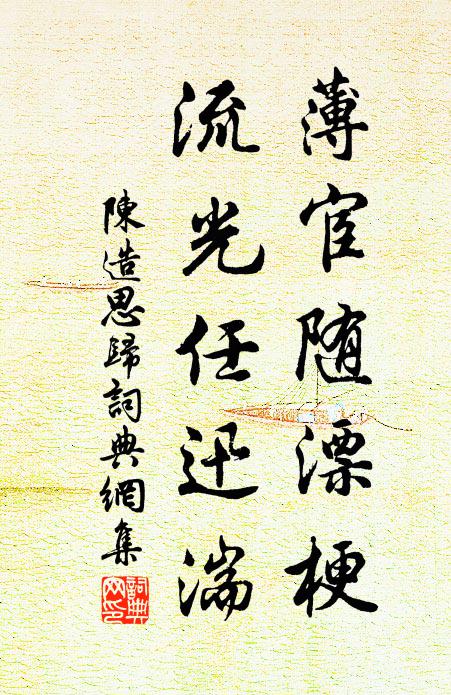 薄宦随漂梗
流光任迅湍
陳造思歸詞典網集
詞典网印